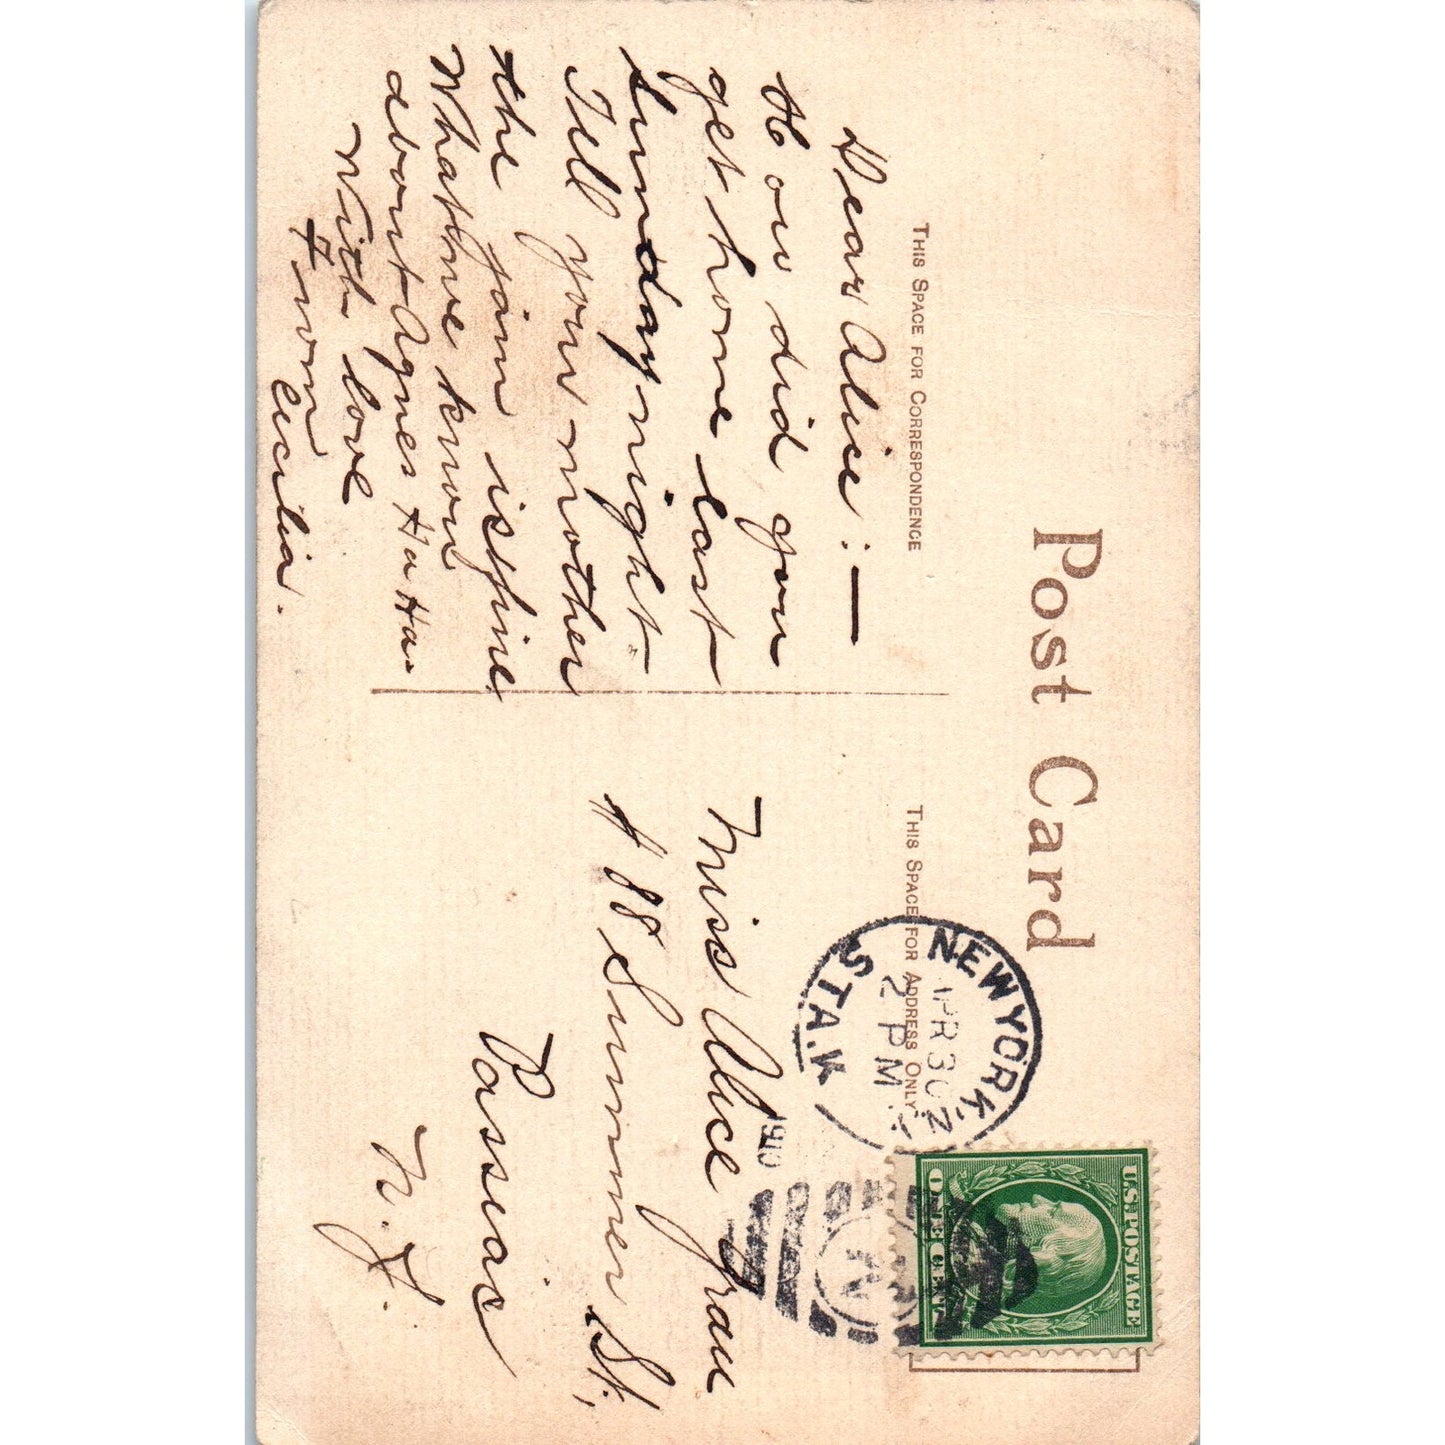 Post Card
THIS SPACE FOR CORRESPONDENCE
Dear Alice:—
How did you
get home last
Sunday night
Tell your mother
the jam is fine
What we know
about Agnes Ha Ha.
With love
From
Cecilia.
THIS SPACE FOR ADDRESS ONLY
NEW YORK, N.Y.
APR 30
2 PM
1910
STA.
N
U.S. POSTAGE
ONE CENT
Miss Alice Grau
#88 Summer St,
Passaic
N.J.